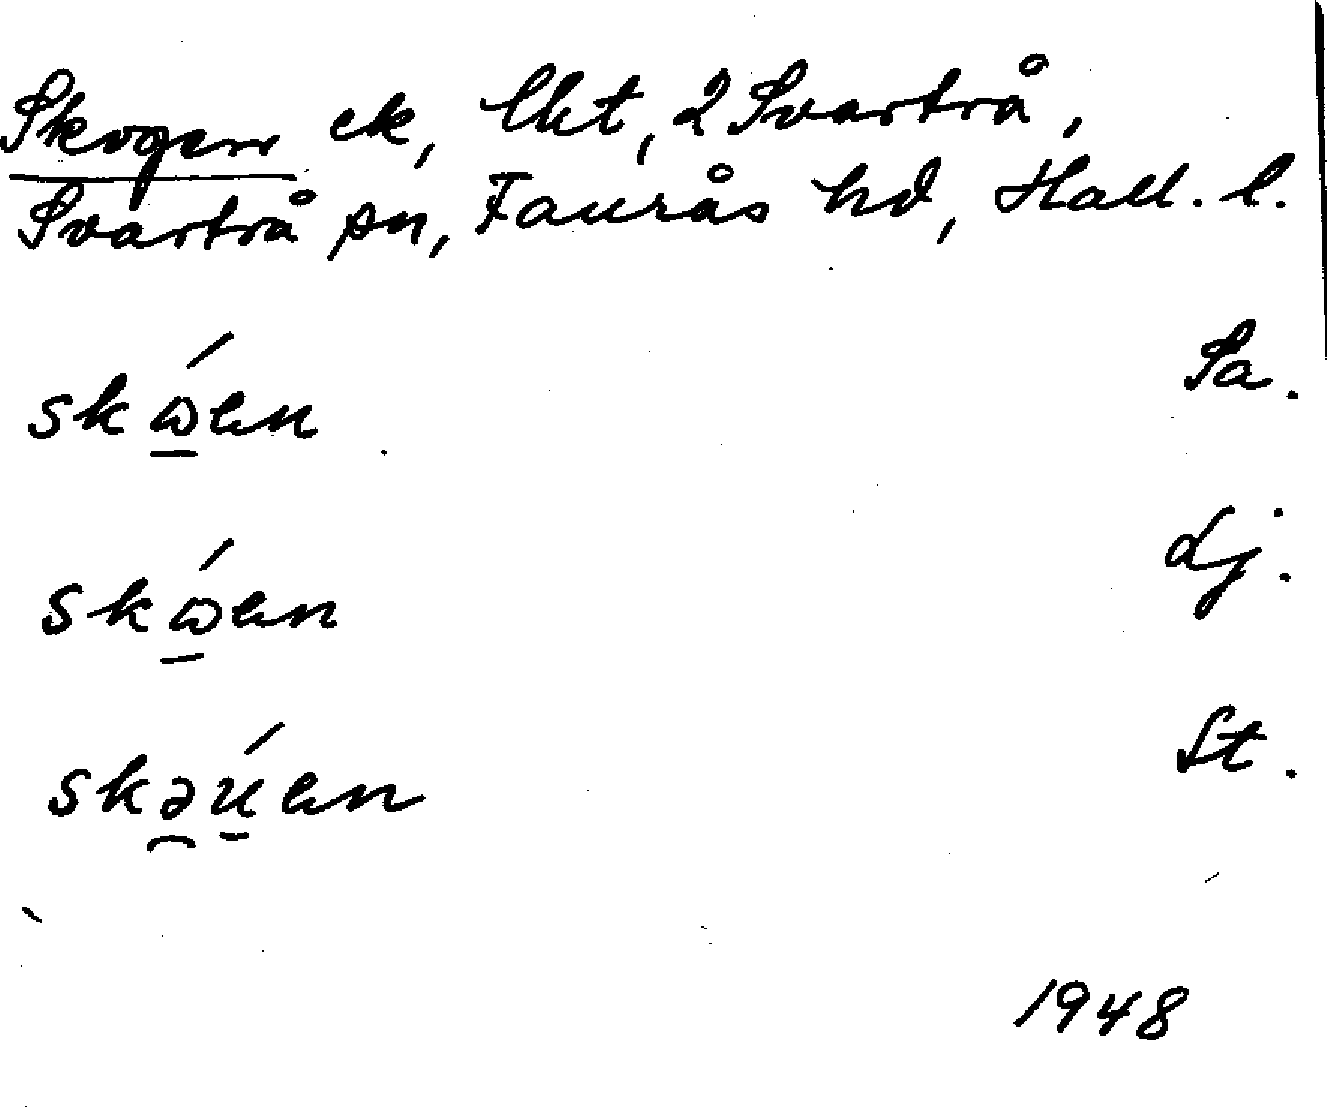 Skogen ek, lht, 2 Svartrå,
Svartrå sn, Faurås hd, Hall. l.
skώ̲en Sa.
skώ̲en dj.
skəú̲en St.
1948